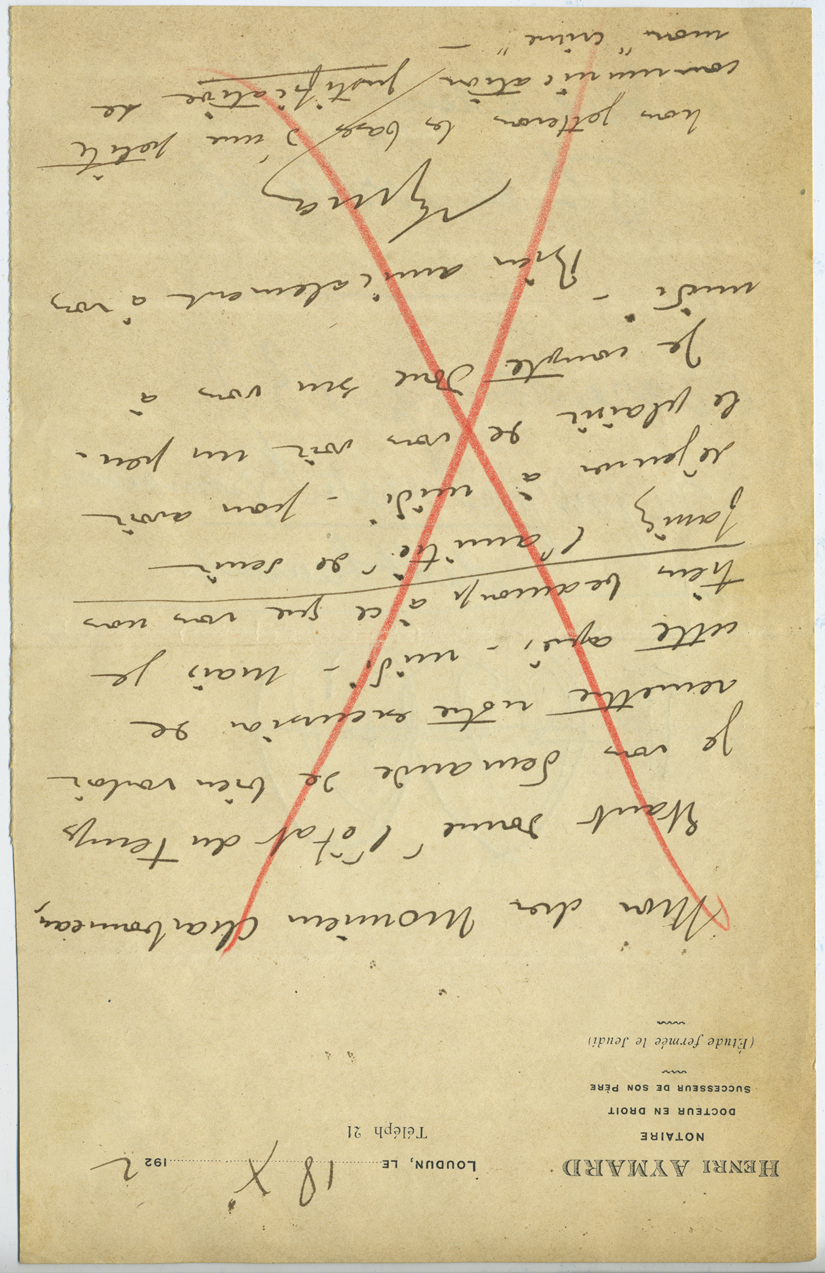 HENRI AYMARD
NOTAIRE
DOCTEUR EN DROIT
SUCCESSEUR DE SON PÈRE
(Étude fermée le Jeudi)
LOUDUN, LE 18 X 1922
Téléph 21
Mon cher Monsieur Charbonneau,
Etant donné l'état du temps
je vous demande de bien vouloir
remettre notre excursion de
cette après-midi - mais je
tiens beaucoup à ce que vous nous
fassiez l'amitié de venir
déjeuner à midi - pour avoir
le plaisir de vous voir un peu.
Je compte donc sur vous à
midi -
Bien amicalement à vous
Aymard
nous jetterons les bases d'une petite
communication justificative de
mon "crime" -